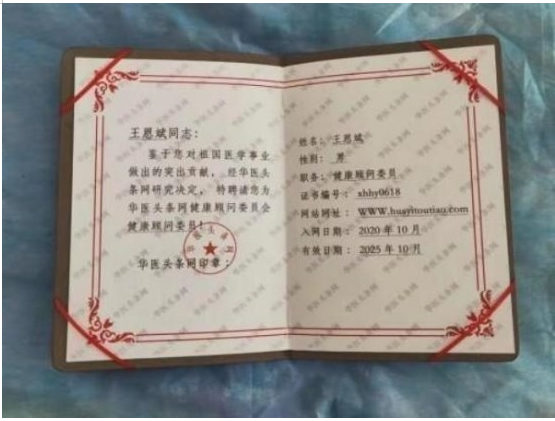 王恩斌同志：
鉴于您对祖国医学事业
做出的突出贡献，经华医头
条网研究决定，特聘请您为
华医头条网健康顾问委员会
健康顾问委员！
华医头条网印章：
华医头条网
姓名：王恩斌
性别：男
职务：健康顾问委员
证书编号：xhhy0618
网站网址：WWW.huayitoutiao.com
入网日期：2020 年 10 月
有效日期：2025 年 10 月